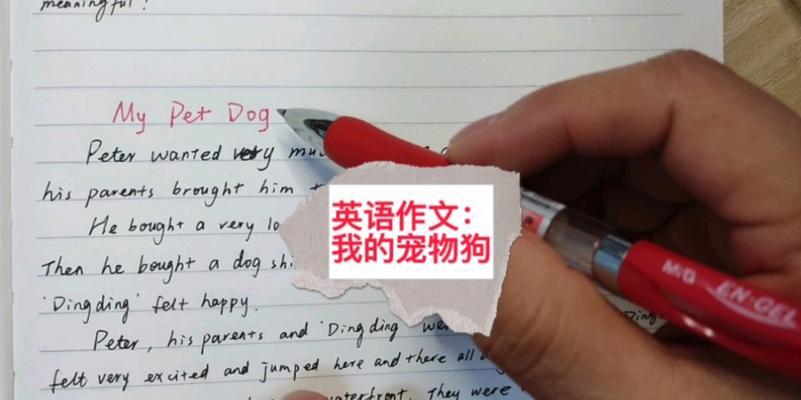 meaningful?
My Pet Dog
Peter wanted very
his parents brought him
He bought a very
Then he bought a dog
'Dingding' felt happy.
Peter, his parents and 'Dingding'
felt very excited and jumped here and there all
waterfront. They were
英语作文：
我的宠物狗
M&G EN-GEL